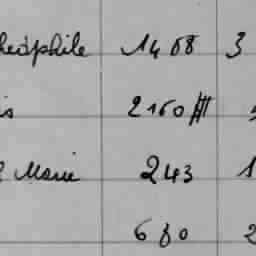 heóphile 1468 3
is 2160
Marie 243 1
680 2